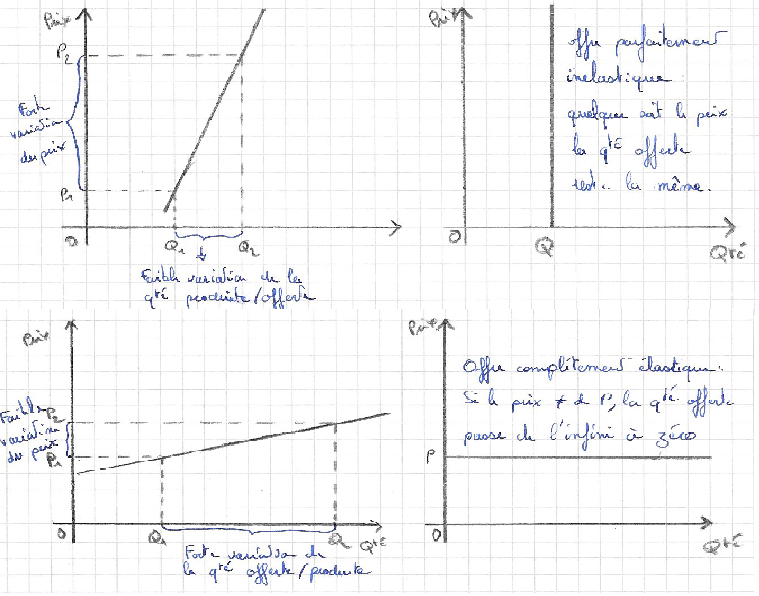 Prix
P2
Forte
variation
du prix
P1
0
Q1
Q2
Faible variation de la
qté produite/offerte
Prix
offre parfaitement
inelastique
quelque soit le prix
la qté offerte
reste la même.
0
Q
Qté
Prix
Faible
variation
du prix
P2
P1
0
Q1
Q2
Qté
Forte variation de
la qté offerte/produite
Prix
Offre complètement élastique:
Si le prix ≠ de P, la qté offerte
passe de l'infini à zéro
P
0
Qté